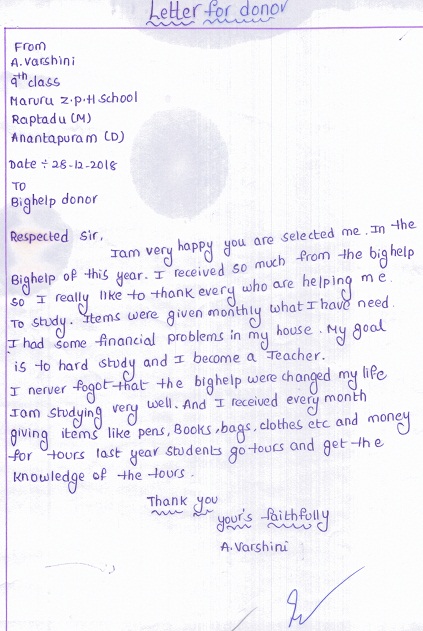 Letter for donor
From
A.Varshini
9th class
Maruru z.p.H school
Raptadu (M)
Anantapuram (D)
Date ÷ 28-12-2018
To
Bighelp donor
Respected Sir,
Iam very happy you are selected me. In the
Bighelp of this year. I received so much from the bighelp
so I really like to thank every who are helping me.
To study. Items were given monthly what I have need.
I had some financial problems in my house. My goal
is to hard study and I become a Teacher.
I nerver fogot that the bighelp were changed my life
Iam studying very well. And I received every month
giving items like pens, Books, bags, clothes etc and money
for tours last year students go tours and get the
knowledge of the tours.
Thank you
your's faithfully
A.Varshini